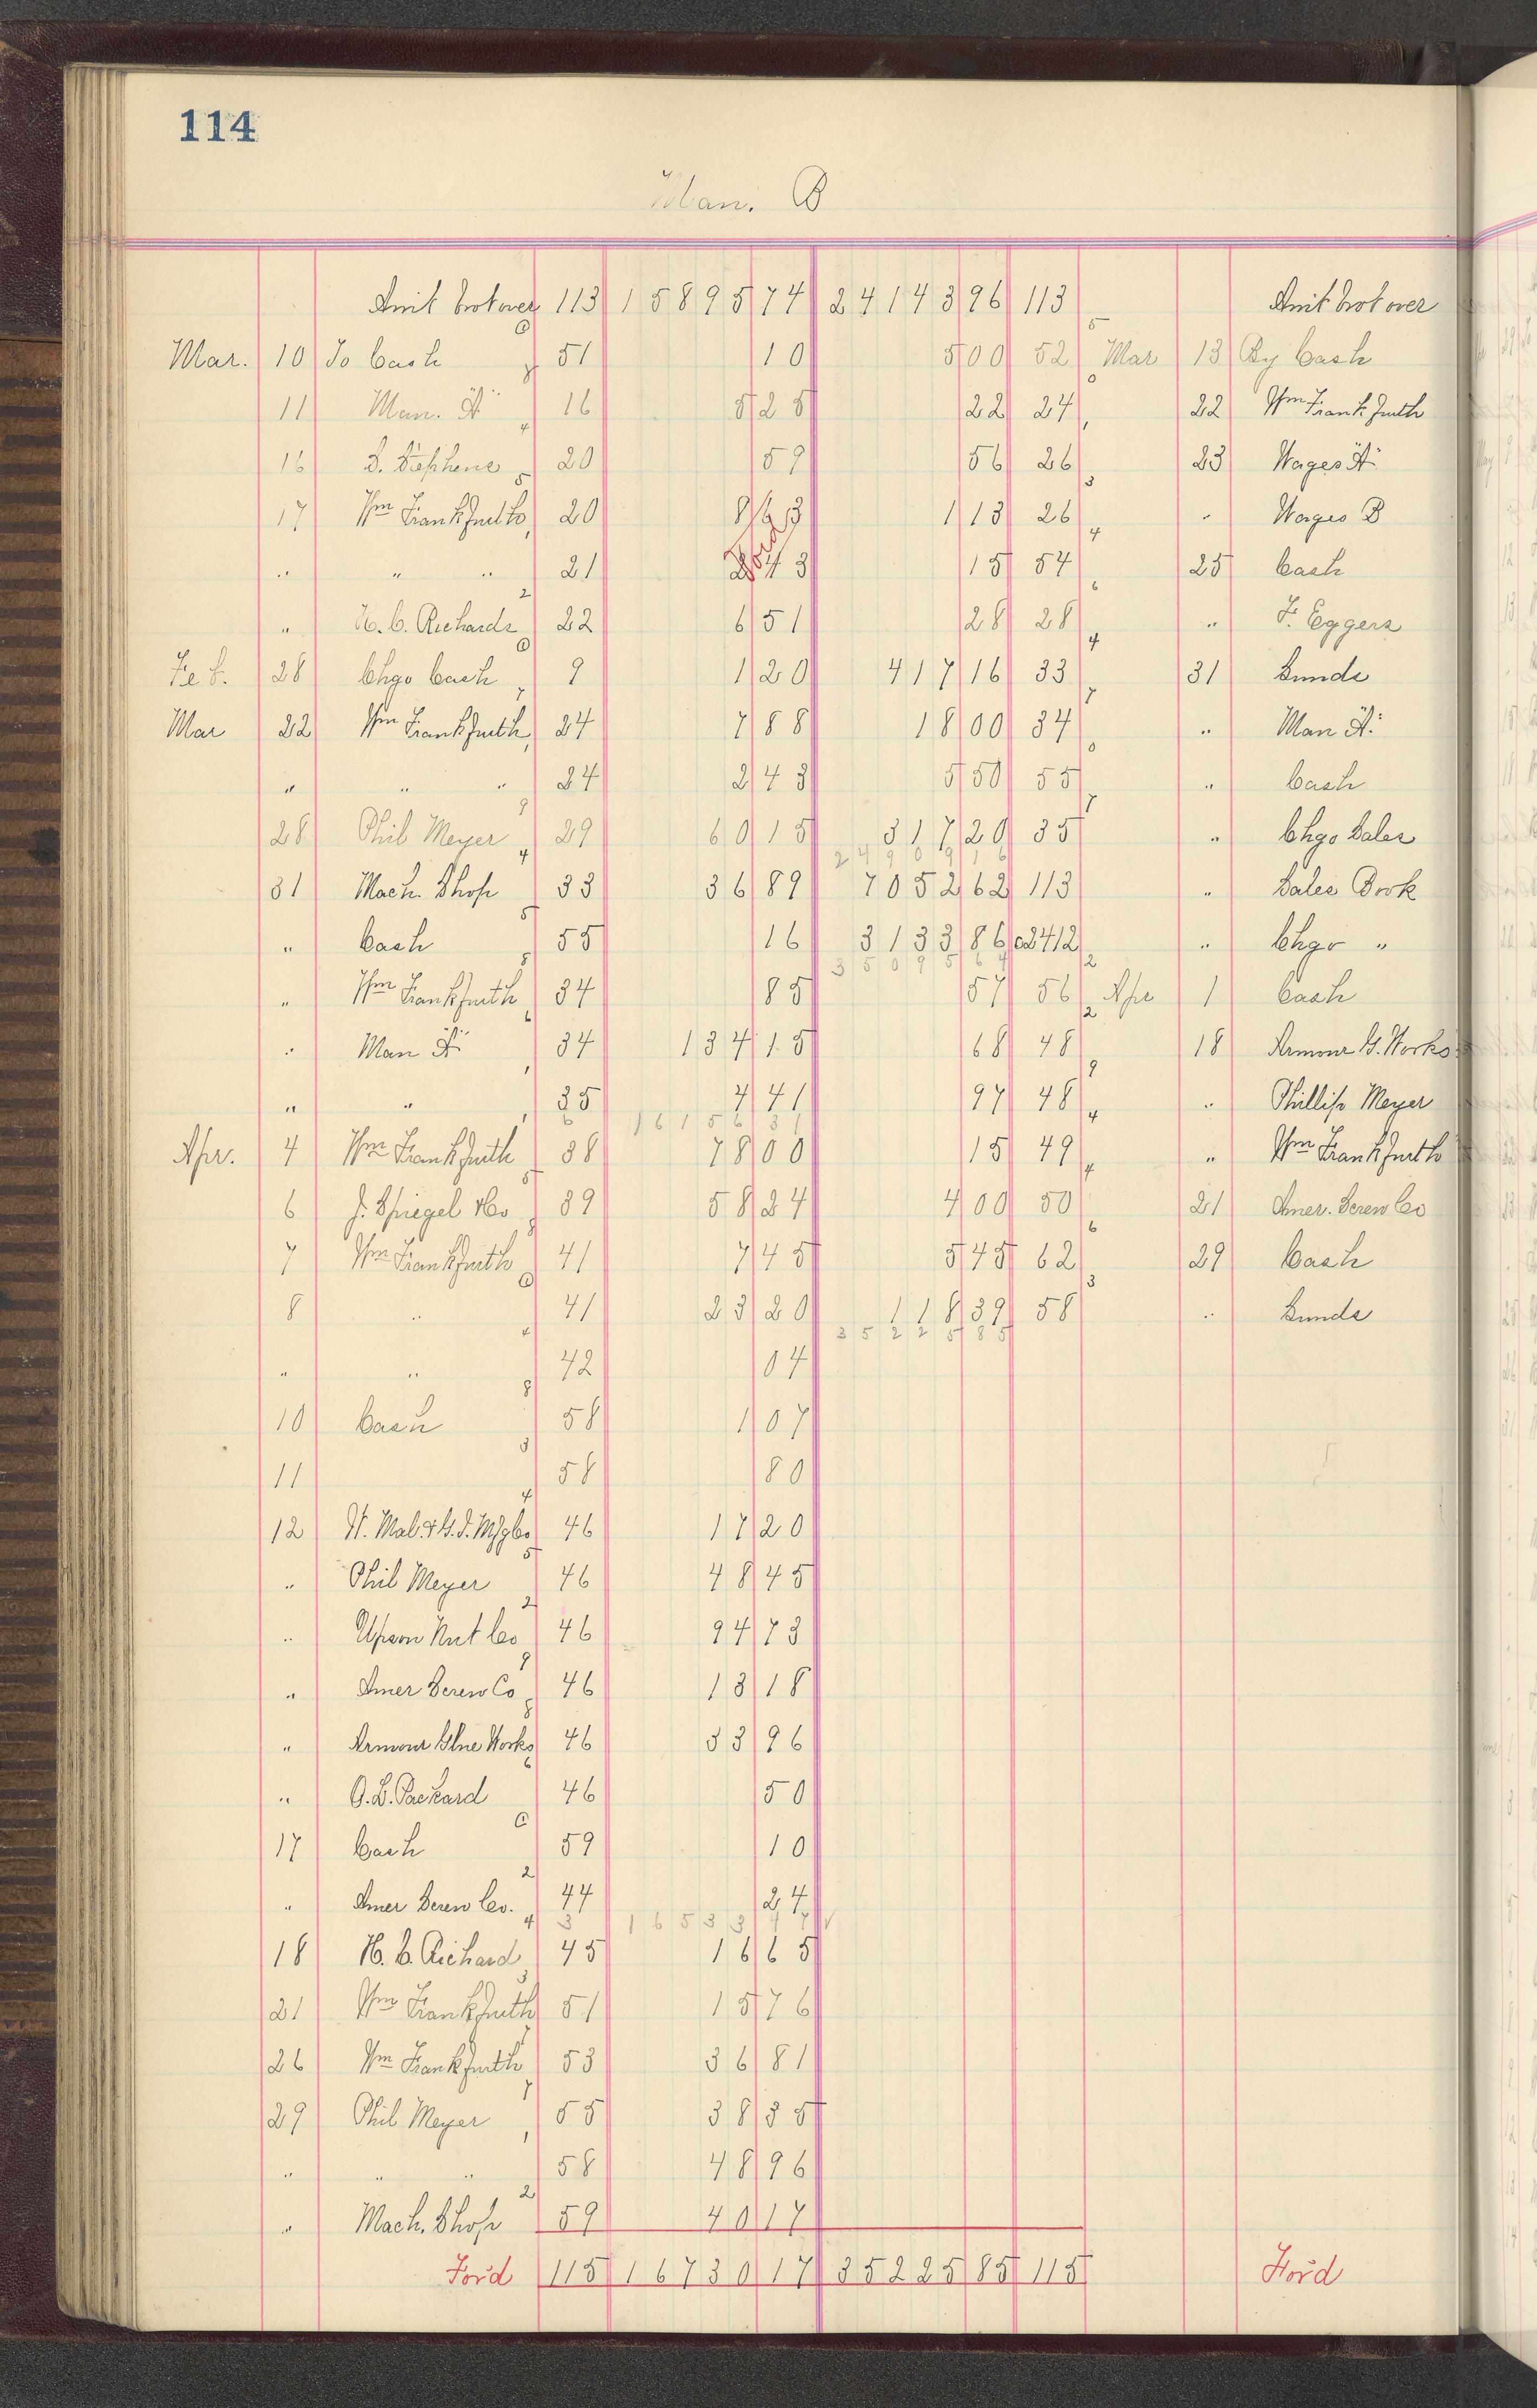 114
Man. B
Amt brot over 113 15895 74 24143 96 113 Amt brot over
Mar. 10 To Cash 51 10 500 52 Mar 13 By Cash
11 Man. A 16 5 25 22 24 22 Wm Frankfurth
16 S. Stephens 20 59 56 26 23 Wages A
17 Wm Frankfurth 20 113 26 " Wages B
" " " 21 2 43 15 54 25 Cash
" H. C. Richards 22 6 51 28 28 " F. Eggers
Feb. 28 Chgo Cash 9 1 20 417 16 33 31 Sunds
Mar 22 Wm Frankfurth 24 7 88 18 00 34 " Man A
" " " 24 2 43 5 50 55 " Cash
28 Phil Meyer 29 60 15 317 20 35 " Chgo Sales
24909 16
31 Mach. Shop 33 36 89 7052 62 113 " Sales Book
" Cash 55 16 3133 86 C2412 " Chgo "
35095 64
" Wm Frankfurth 34 85 57 56 Apr 1 Cash
" Man A 34 134 15 68 48 18 Armour G. Works
" " 35 4 41 97 48 " Phillip Meyer
16156 31
Apr. 4 Wm Frankfurth 38 78 00 15 49 " Wm Frankfurth
6 J. Spiegel & Co 39 58 24 4 00 50 21 Amer. Screw Co
7 Wm Frankfurth 41 7 45 5 45 62 29 Cash
8 " 41 23 20 118 39 58 " Sunds
35225 85
" " 42 04
10 Cash 58 1 07
11 58 80
12 46 17 20
" Phil Meyer 46 48 45
" Upson Nut Co 46 94 73
" Amer Screw Co 46 13 18
" Armour Glue Works 46 33 96
" O. L. Packard 46 50
17 Cash 59 10
" Amer Screw Co. 44 24
16533 47
18 H. C. Richard 45 16 65
21 Wm Frankfurth 51 15 76
26 Wm Frankfurth 53 36 81
29 Phil Meyer 55 38 35
" " " 58 48 96
" Mach. Shop 59 40 17
Ford 115 16730 17 35225 85 115 Ford